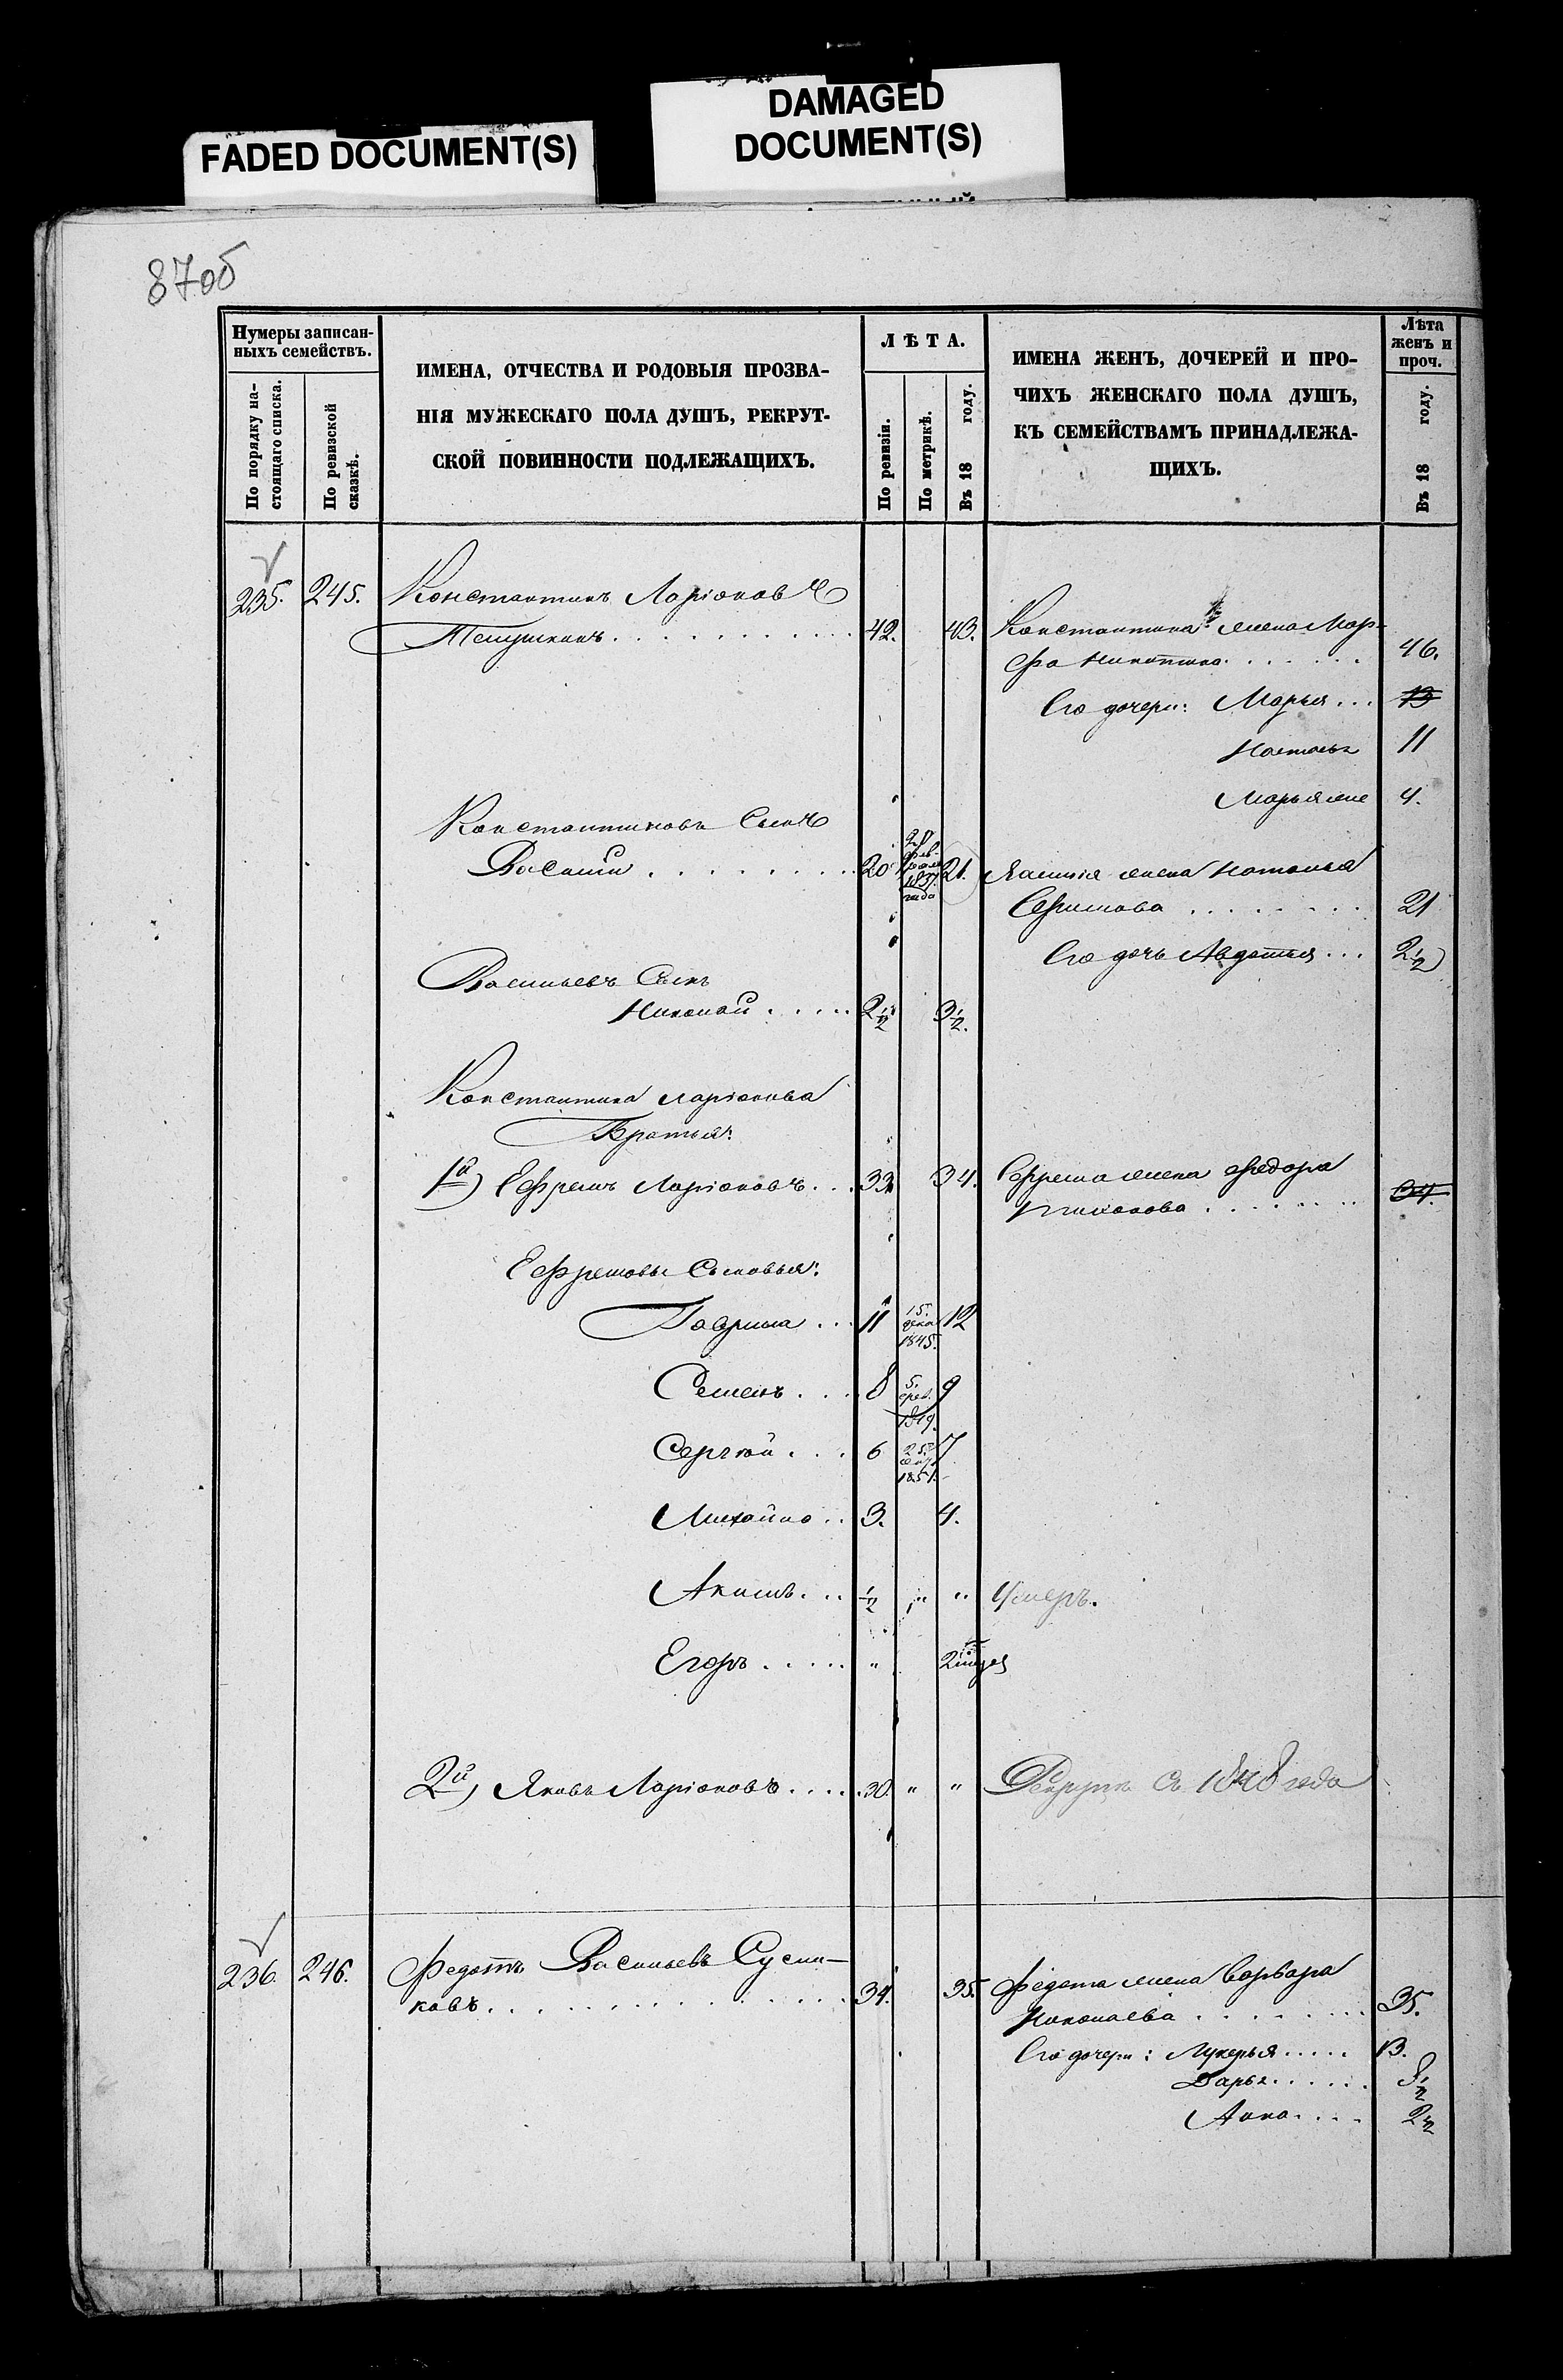 FADED DOCUMENT(S)
DAMAGED
DOCUMENT(S)
87об
Нумеры записан-
ныхъ семействъ.
По порядку на-
стоящаго списка.
По ревизской
сказкѣ.
ИМЕНА, ОТЧЕСТВА И РОДОВЫЯ ПРОЗВА-
НІЯ МУЖЕСКАГО ПОЛА ДУШЪ, РЕКРУТ-
СКОЙ ПОВИННОСТИ ПОДЛЕЖАЩИХЪ.
ЛѢТА.
По ревизіи.
По метрикѣ.
Въ 18 году.
ИМЕНА ЖЕНЪ, ДОЧЕРЕЙ И ПРО-
ЧИХЪ ЖЕНСКАГО ПОЛА ДУШЪ,
КЪ СЕМЕЙСТВАМЪ ПРИНАДЛЕЖА-
ЩИХЪ.
Лѣта
женъ и
проч.
Въ 18 году.
235. 245. Константинъ Ларіоновъ
42. 43. Константина жена Мар-
фа Никитина 46.
Его дочери: Марья 13
Насталья 11
Марья же 4.
Константиновъ Сынъ
Василій 20 28 фев- 1837 года 21. Василія жена Наталья
Ефимова 21
Его дочь Авдотья 2½
Васильевъ Сынъ
Николай 2½ 3½.
Константина Ларіонова
Братья:
1й) Ефремъ Ларіоновъ 33 34. Ефрема жена Федора
34.
Ефремовы Сыновья:
Гаврила 11 15. дека 1845. 12
Семенъ 8 5. фев. 1849. 9
Сергей 6 25 сент 1851. 7
Михайло 3. 4.
Акимъ ½ " " Умеръ.
Егоръ " 2 мѣсяц
2й) Яковъ Ларіоновъ 30. " " Рекрутъ съ 1848 года
236. 246. Федотъ Васильевъ Сусли-
ковъ 34. 35. Федота жена Варвара
Николаева 35.
Его дочери: Лукерья 13.
Дарья 8½
Анна 2½